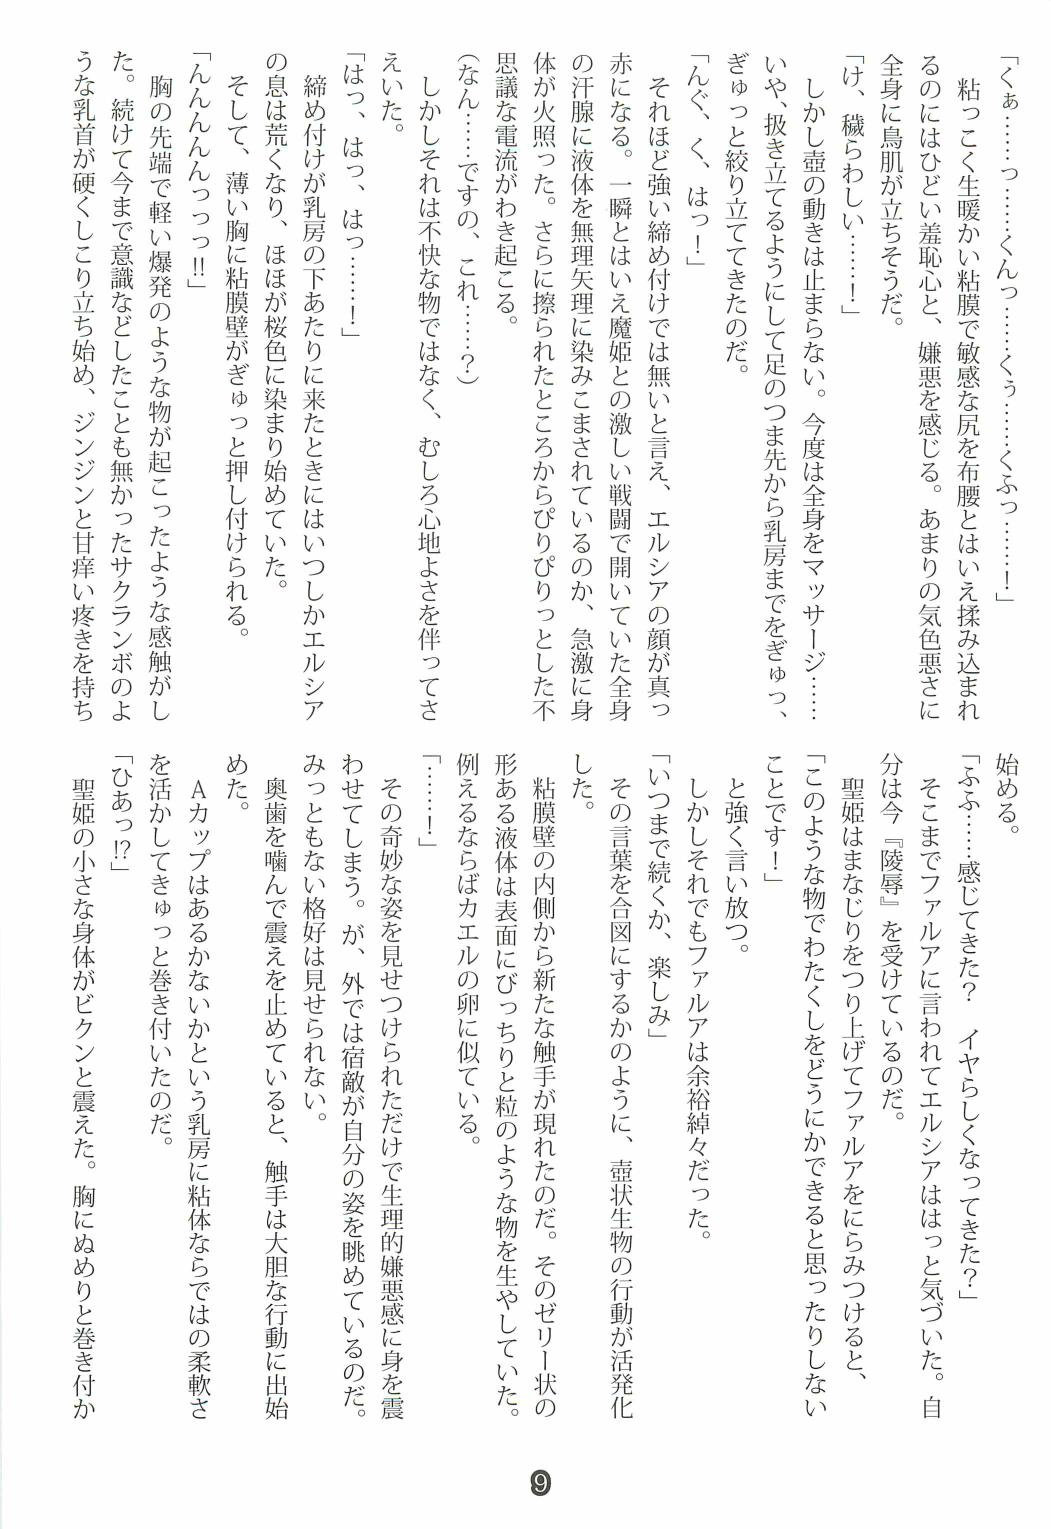 「くぁ……っ……くんっ……くぅ……くふっ……！」
　粘っこく生暖かい粘膜で敏感な尻を布腰とはいえ揉み込まれ
るのにはひどい羞恥心と、嫌悪を感じる。あまりの気色悪さに
全身に鳥肌が立ちそうだ。
「け、穢らわしい……！」
　しかし壺の動きは止まらない。今度は全身をマッサージ……
いや、扱き立てるようにして足のつま先から乳房までをぎゅっ、
ぎゅっと絞り立ててきたのだ。
「んぐ、く、はっ！」
　それほど強い締め付けでは無いと言え、エルシアの顔が真っ
赤になる。一瞬とはいえ魔姫との激しい戦闘で開いていた全身
の汗腺に液体を無理矢理に染みこまされているのか、急激に身
体が火照った。さらに擦られたところからぴりぴりっとした不
思議な電流がわき起こる。
（なん……ですの、これ……？）
　しかしそれは不快な物ではなく、むしろ心地よさを伴ってさ
えいた。
「はっ、はっ、はっ……！」
　締め付けが乳房の下あたりに来たときにはいつしかエルシア
の息は荒くなり、ほほが桜色に染まり始めていた。
　そして、薄い胸に粘膜壁がぎゅっと押し付けられる。
「んんんんんっっっ!!」
　胸の先端で軽い爆発のような物が起こったような感触がし
た。続けて今まで意識などしたことも無かったサクランボのよ
うな乳首が硬くしこり立ち始め、ジンジンと甘痒い疼きを持ち
始める。
「ふふ……感じてきた？　イヤらしくなってきた？」
　そこまでファルアに言われてエルシアははっと気づいた。自
分は今『陵辱』を受けているのだ。
　聖姫はまなじりをつり上げてファルアをにらみつけると、
「このような物でわたくしをどうにかできると思ったりしない
ことです！」
　と強く言い放つ。
　しかしそれでもファルアは余裕綽々だった。
「いつまで続くか、楽しみ」
　その言葉を合図にするかのように、壺状生物の行動が活発化
した。
　粘膜壁の内側から新たな触手が現れたのだ。そのゼリー状の
形ある液体は表面にびっちりと粒のような物を生やしていた。
例えるならばカエルの卵に似ている。
「……！」
　その奇妙な姿を見せつけられただけで生理的嫌悪感に身を震
わせてしまう。が、外では宿敵が自分の姿を眺めているのだ。
みっともない格好は見せられない。
　奥歯を噛んで震えを止めていると、触手は大胆な行動に出始
めた。
　Ａカップはあるかないかという乳房に粘体ならではの柔軟さ
を活かしてきゅっと巻き付いたのだ。
「ひあっ!?」
　聖姫の小さな身体がビクンと震えた。胸にぬめりと巻き付か
9